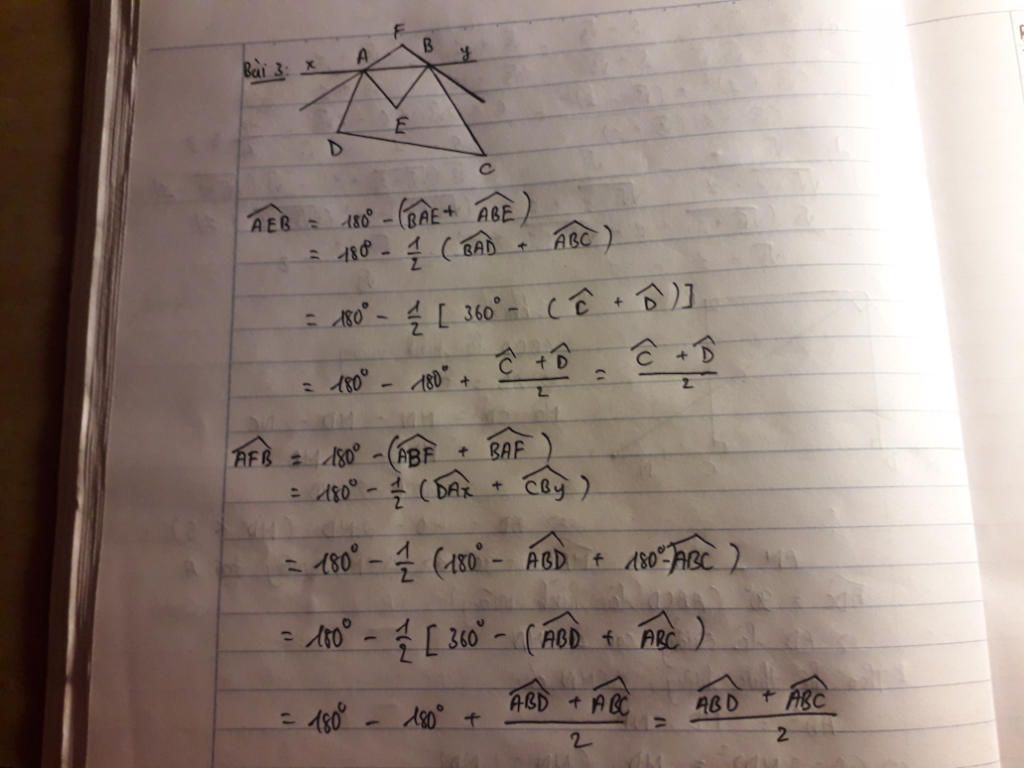 F
A B
Bài 3: x y
E
D
C
\widehat{AEB} = 180° - (\widehat{BAE} + \widehat{ABE})
= 180° - \frac{1}{2} (\widehat{BAD} + \widehat{ABC})
= 180° - \frac{1}{2} [ 360° - (\widehat{C} + \widehat{D})]
= 180° - 180° + \frac{\widehat{C} + \widehat{D}}{2} = \frac{\widehat{C} + \widehat{D}}{2}
\widehat{AFB} = 180° - (\widehat{ABF} + \widehat{BAF})
= 180° - \frac{1}{2} (\widehat{DAx} + \widehat{CBy})
= 180° - \frac{1}{2} (180° - \widehat{ABD} + 180° - \widehat{ABC})
= 180° - \frac{1}{2} [ 360° - (\widehat{ABD} + \widehat{ABC})
= 180° - 180° + \frac{\widehat{ABD} + \widehat{ABC}}{2} = \frac{\widehat{ABD} + \widehat{ABC}}{2}